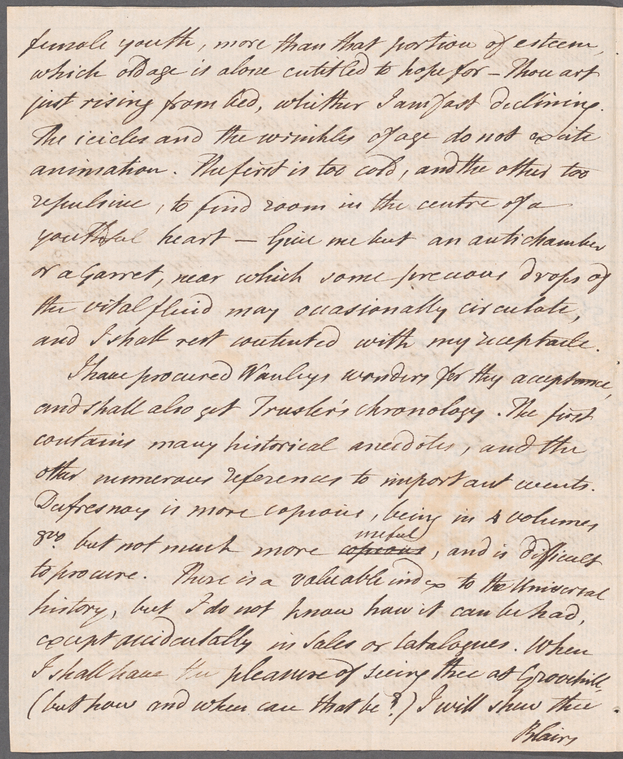 female youth, more than that portion of esteem,
which old age is alone entitled to hope for – Thou art
just rising from bed, whither I am fast declining.
The icicles and the wrinkles of age do not excite
animation. The first is too cold, and the other too
repulsive, to find room in the centre of a
youthful heart – Give me but an antichamber
or a Garret, near which some precious drops of
the vital fluid may occasionally circulate,
and I shall rest contented with my receptacle.
I have procured Wanleys wonders for thy acceptance,
and shall also get Trusler's chronology. The first
contains many historical anecdotes, and the
other numerous references to important events.
Dufresnoy is more copious, being in 4 volumes
useful
8vo but not much more copious, and is difficult
to procure. There is a valuable index to the Universal
history, but I do not know how it can be had,
except accidentally in sales or catalogues. When
I shall have the pleasure of seeing thee at Grovehill,
(but how and when can that be?) I will shew thee
Blairs